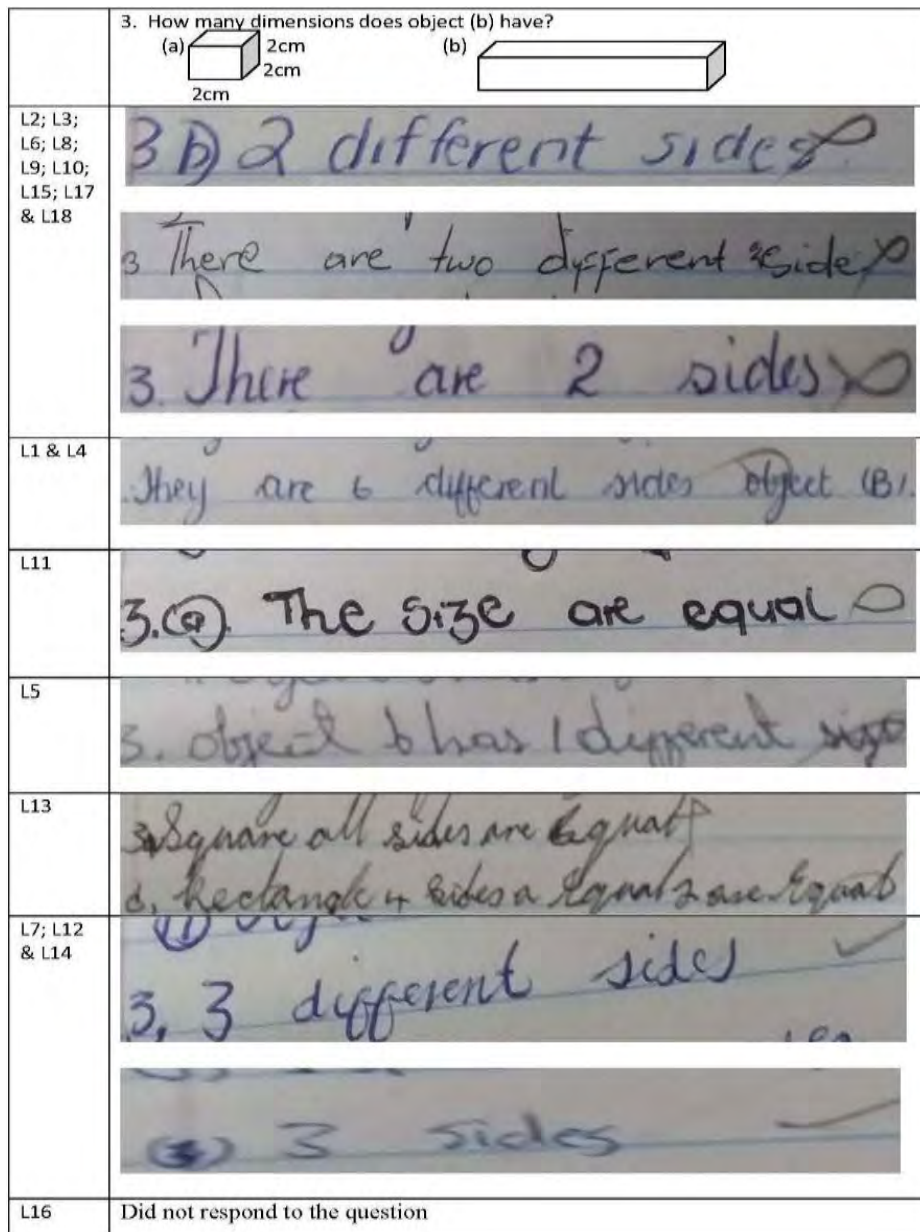 3. How many dimensions does object (b) have?
(a) 2cm (b)
2cm
2cm
L2; L3;
L6; L8;
L9; L10;
L15; L17
& L18
3 b) 2 different sides
3 There are two different side
3. There are 2 sides
L1 & L4
They are 6 different sides object (B).
L11
3.(a). The size are equal
L5
3. object b has 1 different
L13
3. Square all sides are Equal
Rectangle 4 sides a Equal 2 are Equal
L7; L12
& L14
3, 3 different sides
(3) 3 sides
L16 Did not respond to the question